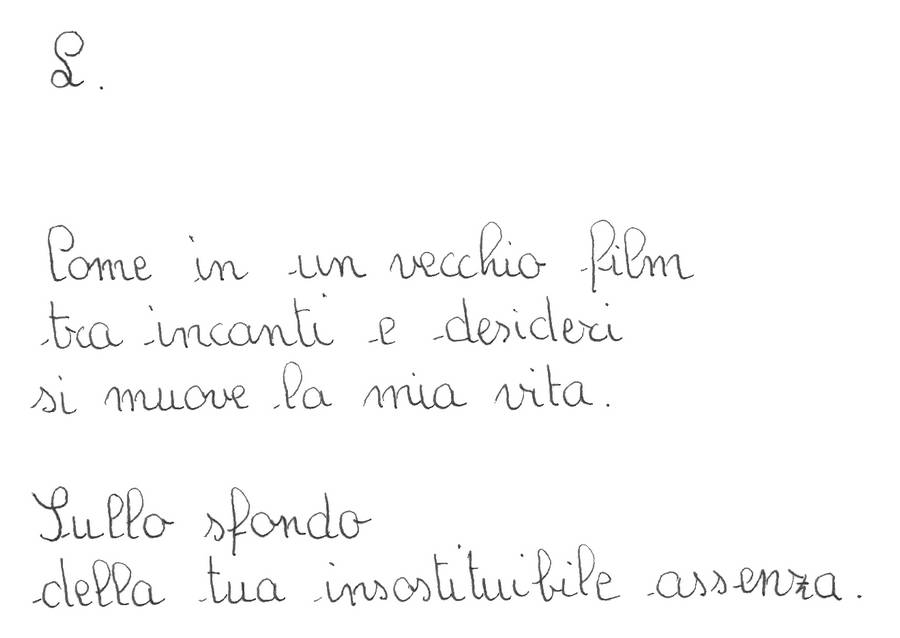 L.
Come in un vecchio film
tra incanti e desideri
si muove la mia vita.
Sullo sfondo
della tua insostituibile assenza.